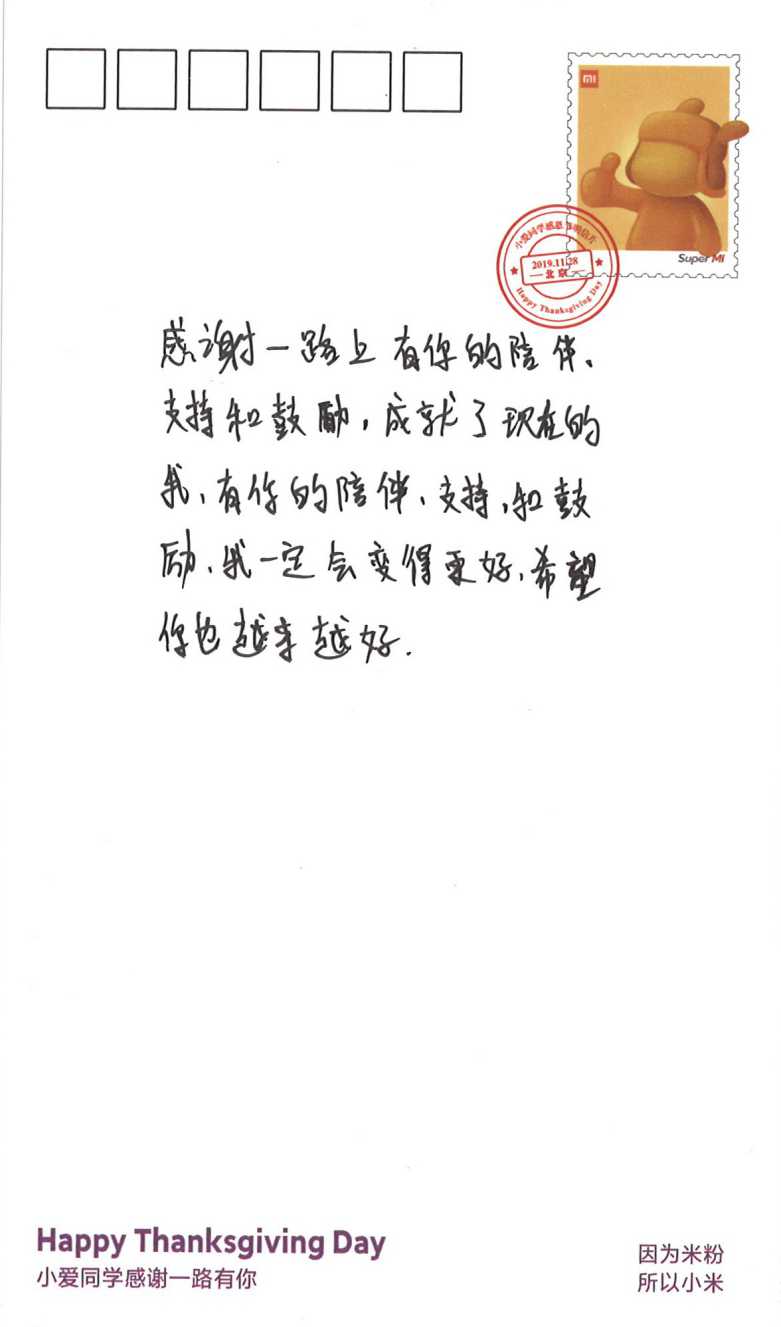 MI
Super MI
小爱同学感恩节明信片
2019.11.28
北京
Happy Thanksgiving Day
感谢一路上有你的陪伴、
支持和鼓励，成就了现在的
我、有你的陪伴、支持，和鼓
励、我一定会变得更好、希望
你也越来越好.
Happy Thanksgiving Day
小爱同学感谢一路有你
因为米粉
所以小米